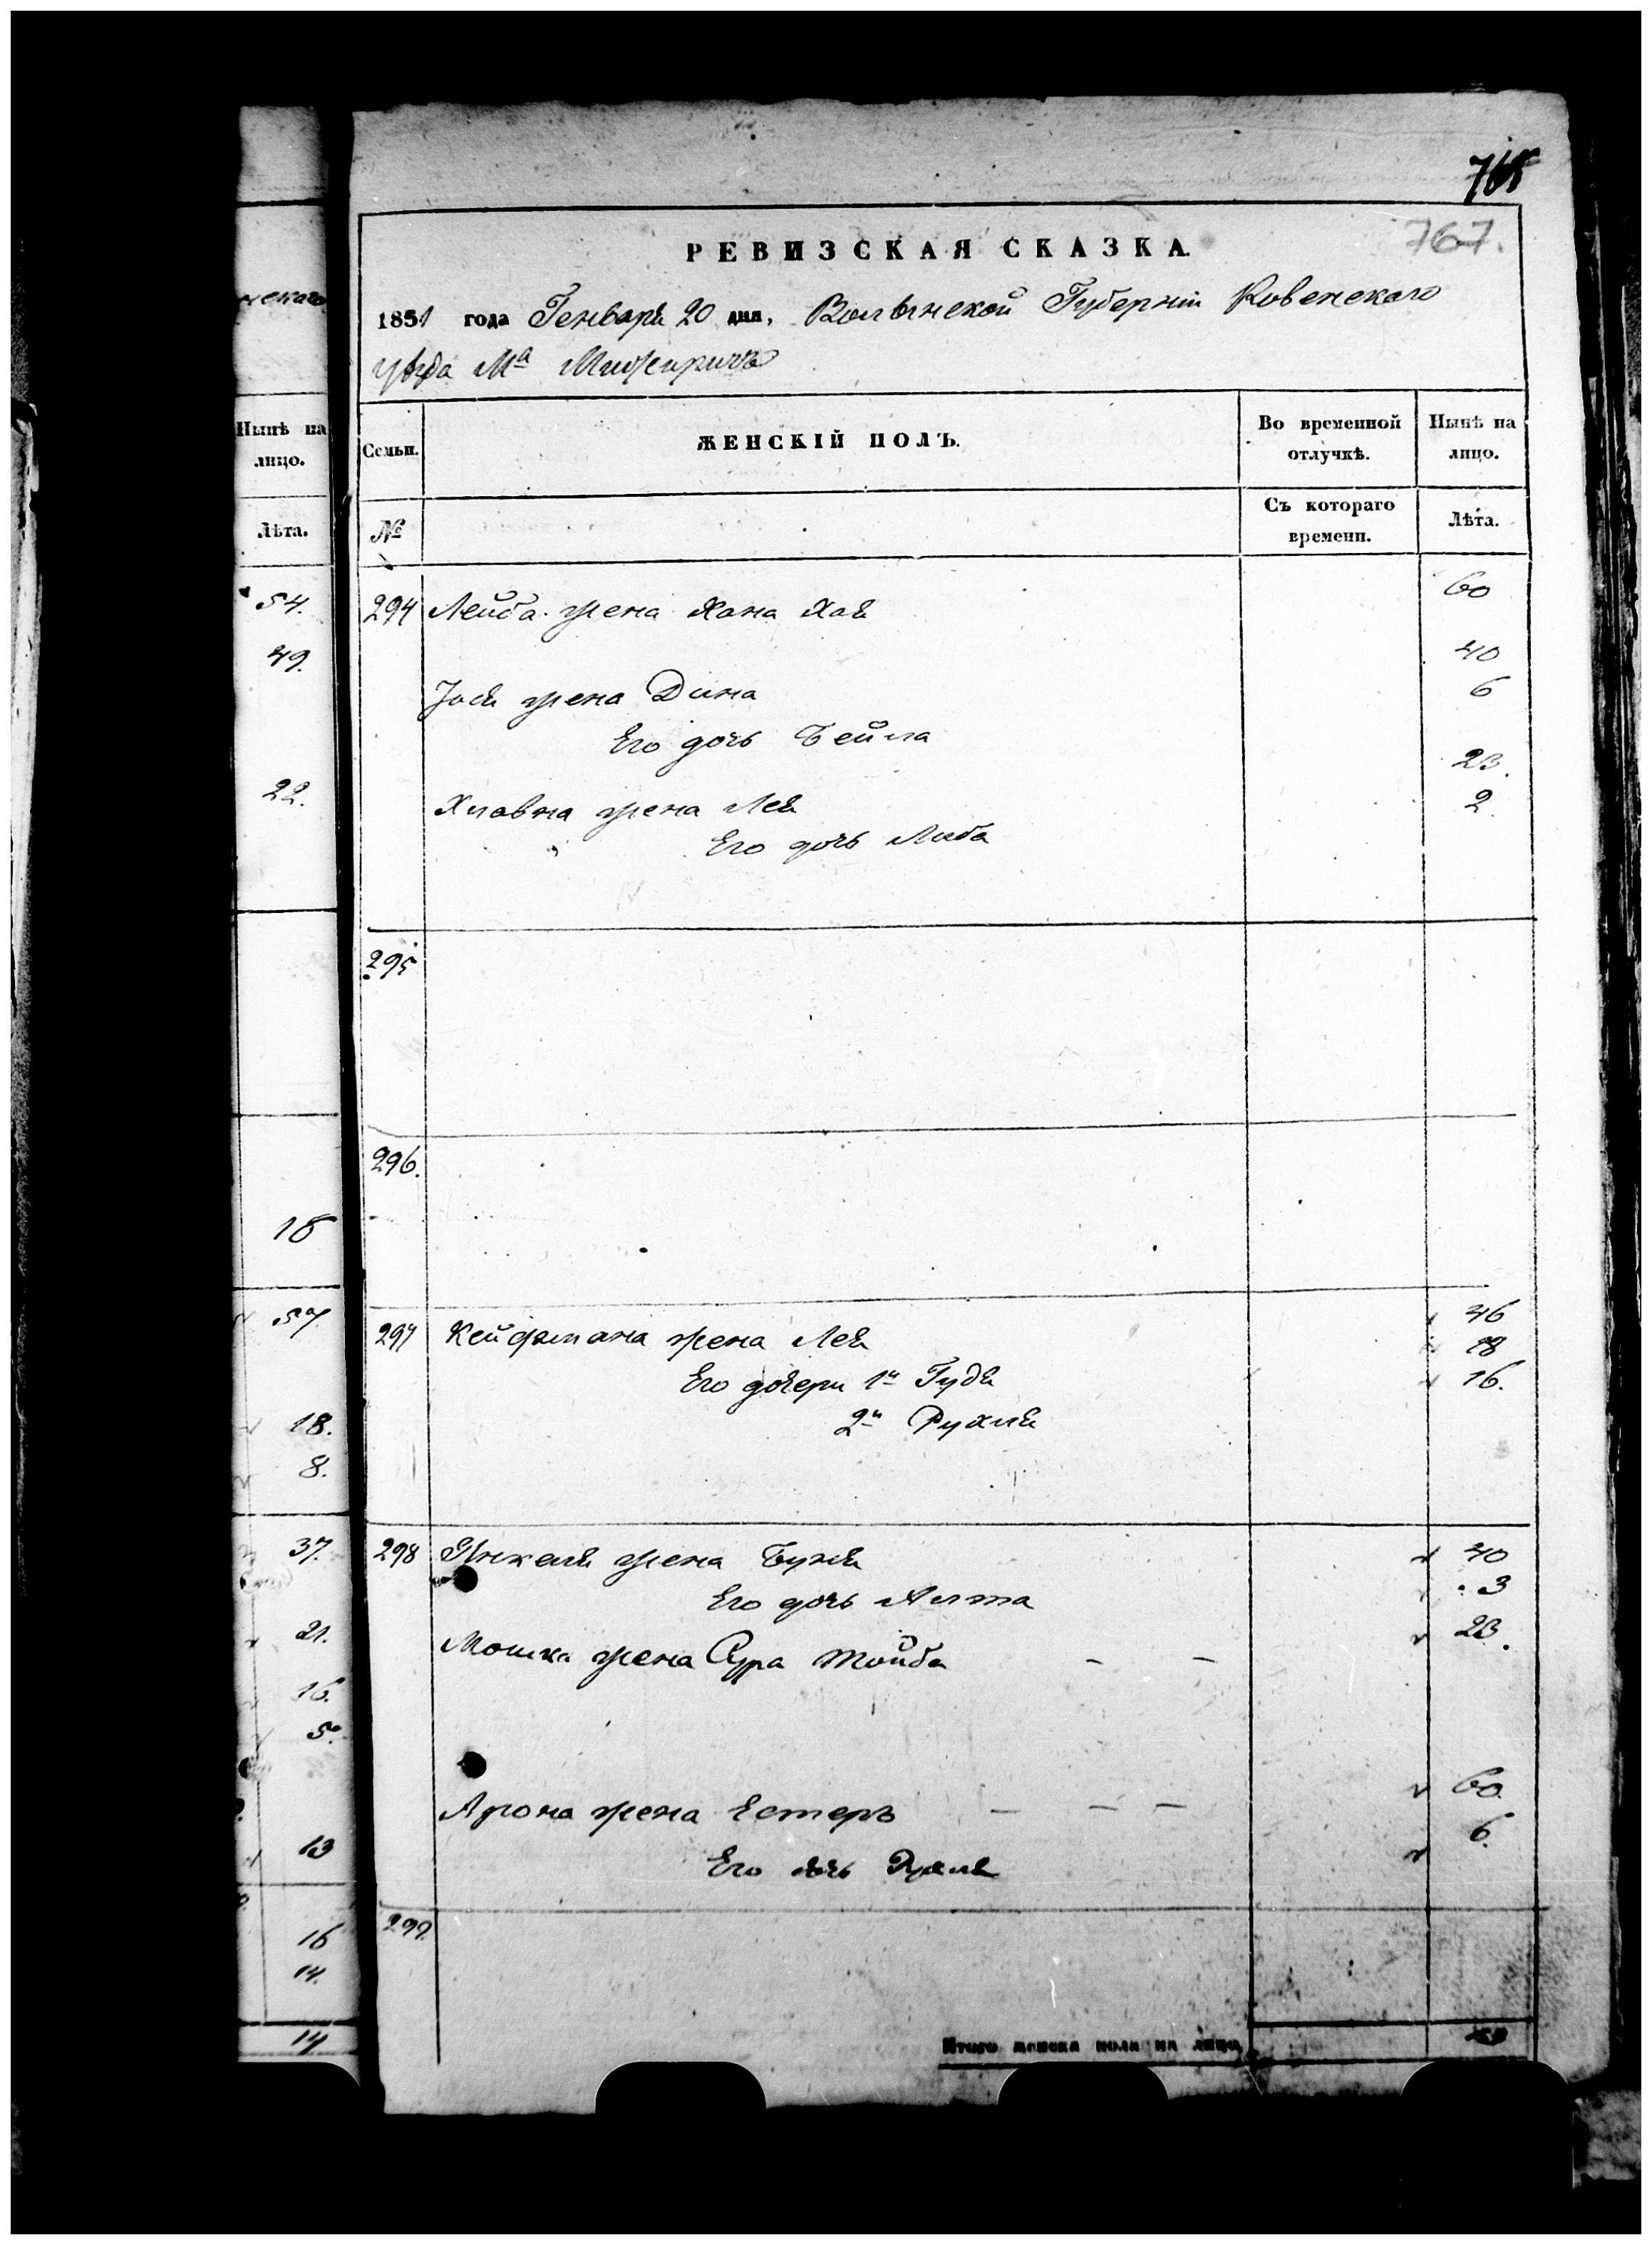 768
767.
РЕВИЗСКАЯ СКАЗКА.
1851 года Генваря 20 дня, Волынской Губерніи Ровенскаго
уѣзда Мᵃ Межирича
Нынѣ на лицо.
Лѣта.
Семьи.
ЖЕНСКІЙ ПОЛЪ.
Во временной отлучкѣ.
Нынѣ на лицо.
№
Съ котораго времени.
Лѣта.
54.
49.
22.
18
57
18.
8.
37.
21.
16.
5.
13
16
14.
14
294 Лейба жена Хана Хая 60
Іося жена Дина 40
Его дочь Бейла 6
Хлавна жена Лея 23.
Его дочь Либа 2.
295
296.
297 жена Лея 46
Его дочери 1я Гудя 18
2я Рухля 16.
298 Янкеля жена Буня 40
Его дочь Алта 3
Мошка жена Сура Тойба 23.
Арона жена Естеръ 60.
Его дочь Рухля 6.
299.
Итого женска пола на лицо